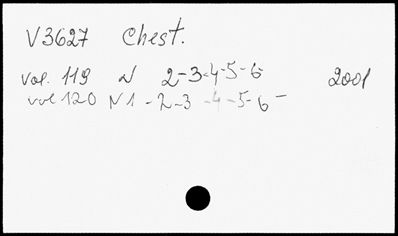 V3627 Chest.
vol. 119 N 2-3-4-5-6- 2001
vol 120 N1-2-3-4-5-6-